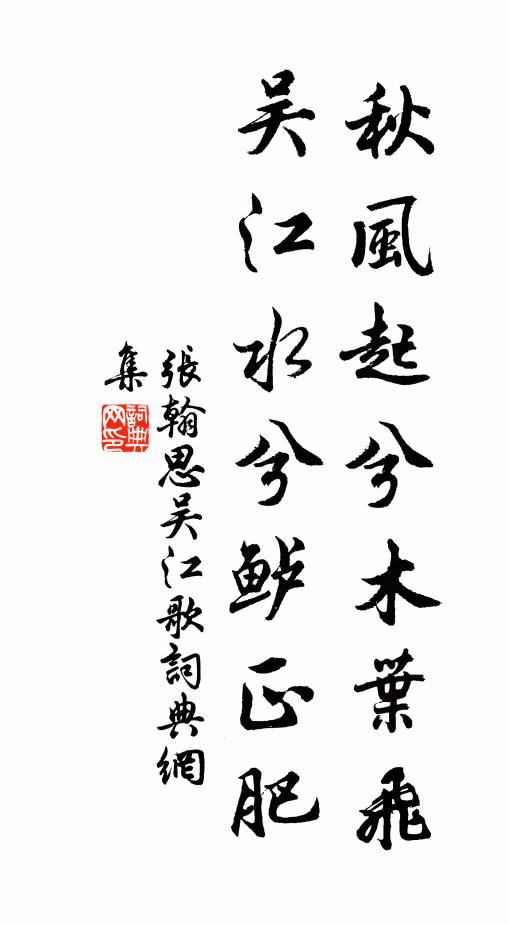 秋風起兮木葉飛
吳江水兮鲈正肥
張翰思吳江歌詞典網
集
詞典
网印